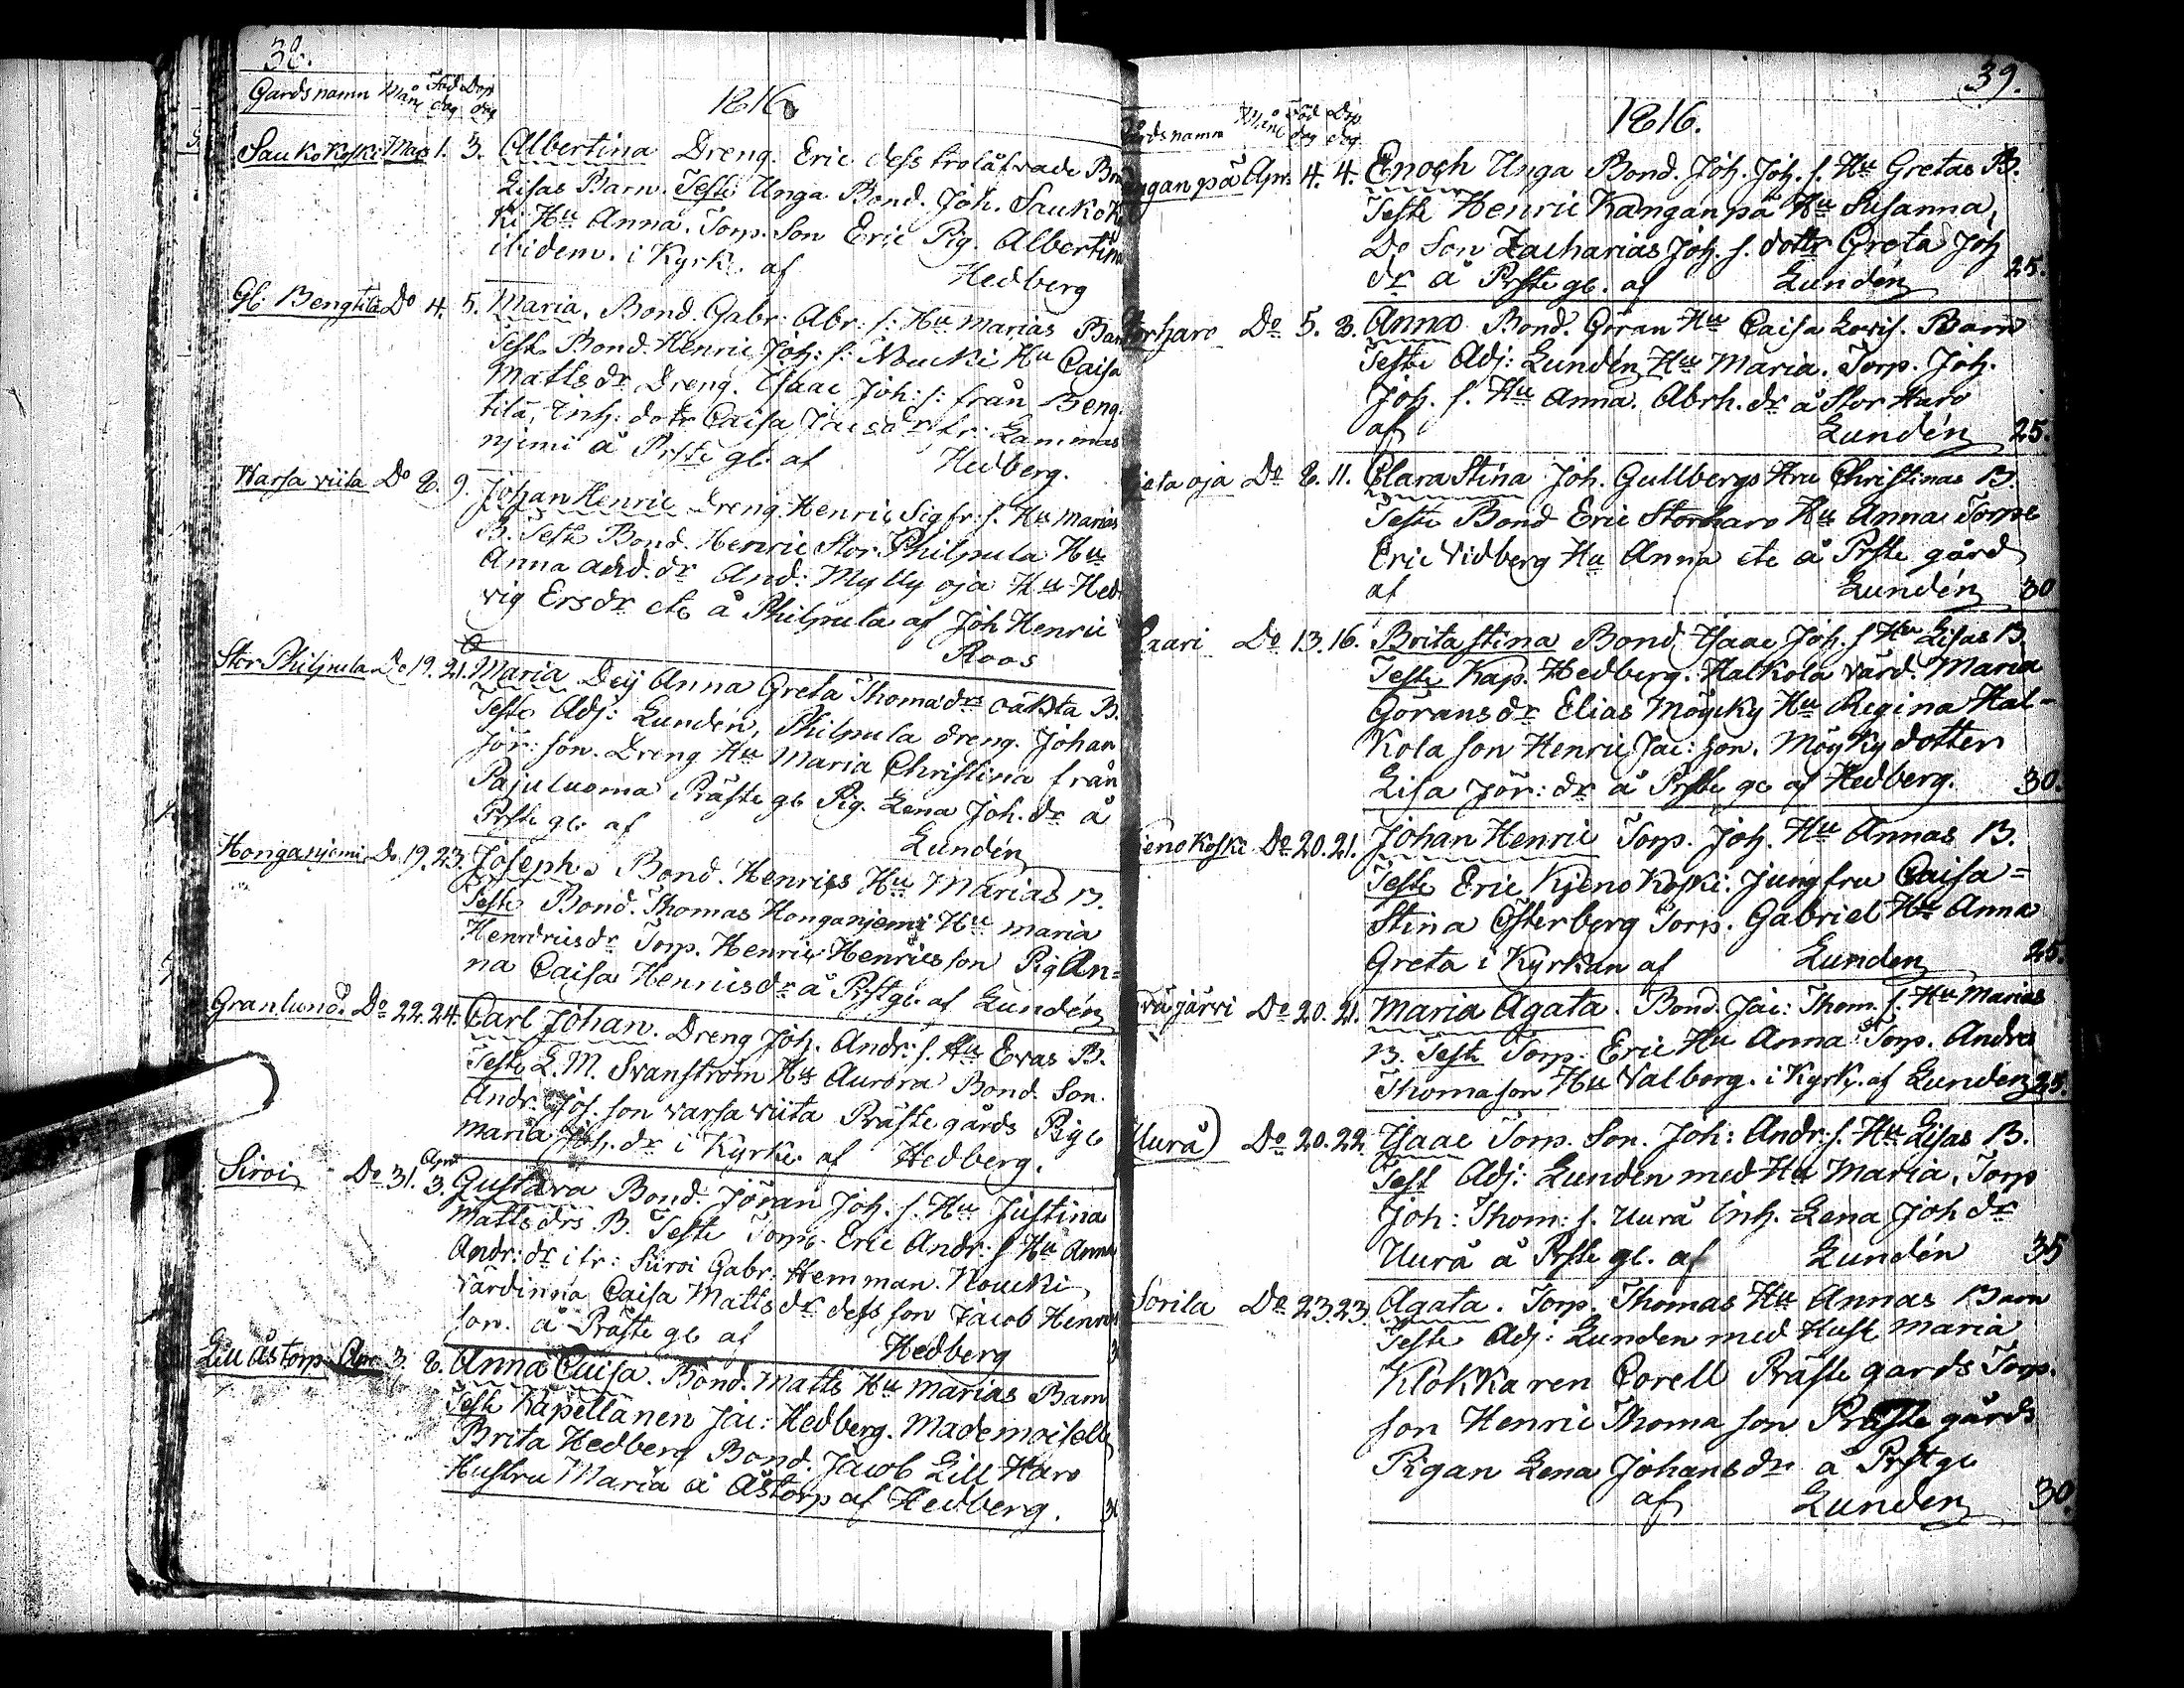 38.
Gårdsnamn Mån Föd dag Dop dag
1816
Saukokoski Mars 1. 3. Albertina Dreng. Eric dess trolåfvade
Lisas Barn. Teste Unga Bond. Joh. Sauko
ki Hu Anna. Torp. Son Eric Pig. Albertina
ibidem. i Kyrk. af Hedberg
Gl. Bengtila Do 4. 5. Maria. Bond. Gabr: Abr: s: Hu Marias Barn
Teste Bond. Henric Joh: s: Noucki Hu Caisa
Matts dr Dreng. Isaac Joh: s: från Beng
tila, Inh: dotr Caisa fr: Lammas
njemi å Prste gl. af Hedberg.
Warsa viita Do 8. 9. Johan Henric Dreng Henric Sigfr: s. Hu Marias
B. Teste Bond. Henric Stor Philpula Hu
Anna And. dr And: Mylly oja Hu Hed
vig Ersdr etc å Philpula af Joh Henric
Roos
Stor Philpula Do 19. 21. Maria Deij Anna Greta Thomadrs oäkta B.
Teste Adj: Lundén, Philpula dreng. Johan
Jör: son. Dreng Hu Maria Christina från
Pajuluoma Präste gl Pig. Lena Joh. dr å
Prste gl. af Lundén
Honganjemi Do 19. 23. Joseph. Bond. Henrics Hu Marias B.
Teste Bond. Thomas Honganjemi Hu Maria
Henricusdr Torp. Henric Henricsson Pig An=
na Caisa Henricsdr å Prstgl. af Lundén
Granlund. Do 22. 24. Carl Johan. Dreng Joh. Andr: s. Hu Evas B.
Teste L. M. Svanström Hu Aurora Bond. Son.
Andr: Joh. son Varsa viita Präste gårds Pig
Maria Joh. dr i Kyrk. af Hedberg.
Siroi Do 31. Apr 3. Gustava Bond. Jöran Joh. s. Hu Justina
Matts drs B. Teste Torp. Eric Andr: s Hu Anna
Andr: dr ifr: Siiroi Gabr: Hemman. Noucki
Värdinna Caisa Matts dr dess son Jacob Henr
son. å Präste gl af Hedberg
Lill Åstorp Apr 3. 8. Anna Caisa. Bond. Matts Hu Marias Barn
Teste Kapellanen Jac: Hedberg. Mademoiselle
Brita Hedberg Bond. Jacob Lill Haro
Hustru Maria å Åstorp af Hedberg.
39.
Gårdsnamn Mån Föd dag Dop dag
1816.
nganpä Apr. 4. 4. Enoch Unga Bond. Joh. Joh. s. Hu Gretas B.
Teste Henric Kanganpä Hu Susanna,
Do Son Zacharias Joh. s. dottr Greta Joh
dr å Prste gl. af Lundén 25.
orharo Do 5. 8. Anna Bond. Göran Hu Caisa Lovis. Barn
Teste Adj: Lundén, Hu Maria. Torp. Joh.
Joh. s. Hu Anna. Abrh. dr å Stor Haro
af Lundén 25.
ataoja Do 8. 11. Clara Stina Joh. Gullbergs Hru Christinas B.
Teste Bond Eric Storharo Hu Anna Torp
Eric Vidberg Hu Anna etc å Prste gård
af Lundén 30
aari Do 13. 16. Brita Stina Bond. Isaac Joh. s Hu Lisas B.
Teste Kap. Hedberg. Halkola Värd. Maria
Göransdr Elias Möycky Hu Regina Hal-
kola son Henric Jac: son. Möyky dotter
Lisa Jör: dr å Prste gl af Hedberg. 30.
ienokoski Do 20. 21. Johan Henric Torp. Joh. Hu Annas B.
Teste Eric Kjenokoski. Jungfru Caisa=
Stina Österberg Torp. Gabriel Hu Anna
Greta i Kyrkan af Lunden 25.
räjärvi Do 20. 21. Maria Agata. Bond. Jac: Thom. s. Hu Marias
B. Teste Torp. Eric Hu Anna Torp. Andrs
Thomason Hu Valborg. i Kyrk. af Lunden 25.
Uurå) Do 20. 22. Isaac Torp. Son. Joh: Andr: s. Hu Lisas B.
Test Adj: Lunden med Hu Maria. Torp
Joh: Thom: s. Uurå Inh. Lena Joh dr
Uurå å Prste gl. af Lundén 35
Sorila Do 23. 23. Agata. Torp. Thomas Hu Annas Barn
Teste Adj: Lunden med Hust Maria
Klokkaren Corell Präste gards Torp.
son Henric Thoma son Präste gårds
Pigan Lena Johansdr å Prstgl
af Lunden 30.